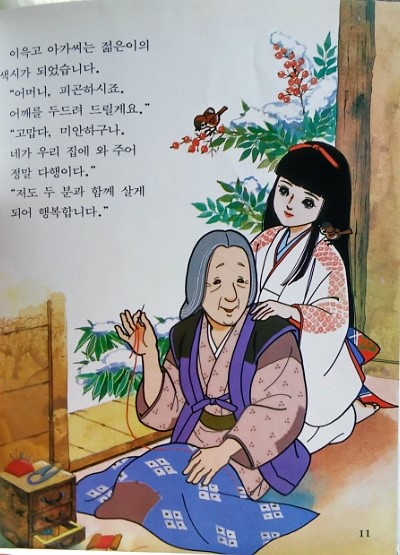 이윽고 아가씨는 젊은이의
색시가 되었습니다.
“어머니, 피곤하시죠.
어깨를 두드려 드릴게요.”
“고맙다, 미안하구나.
네가 우리 집에 와 주어
정말 다행이다.”
“저도 두 분과 함께 살게
되어 행복합니다.”
11